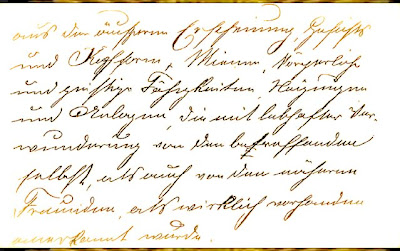 aus der äußeren Erscheinung, Gesichts
und Kopfform, Mienen, körperliche
und geistige Fähigkeiten, Neigungen
und Anlagen, die mit lebhafter Ver-
wunderung von den betreffenden
selbst, als auch von den näheren
Freunden, als wirklich vorhanden
anerkannt wurde.